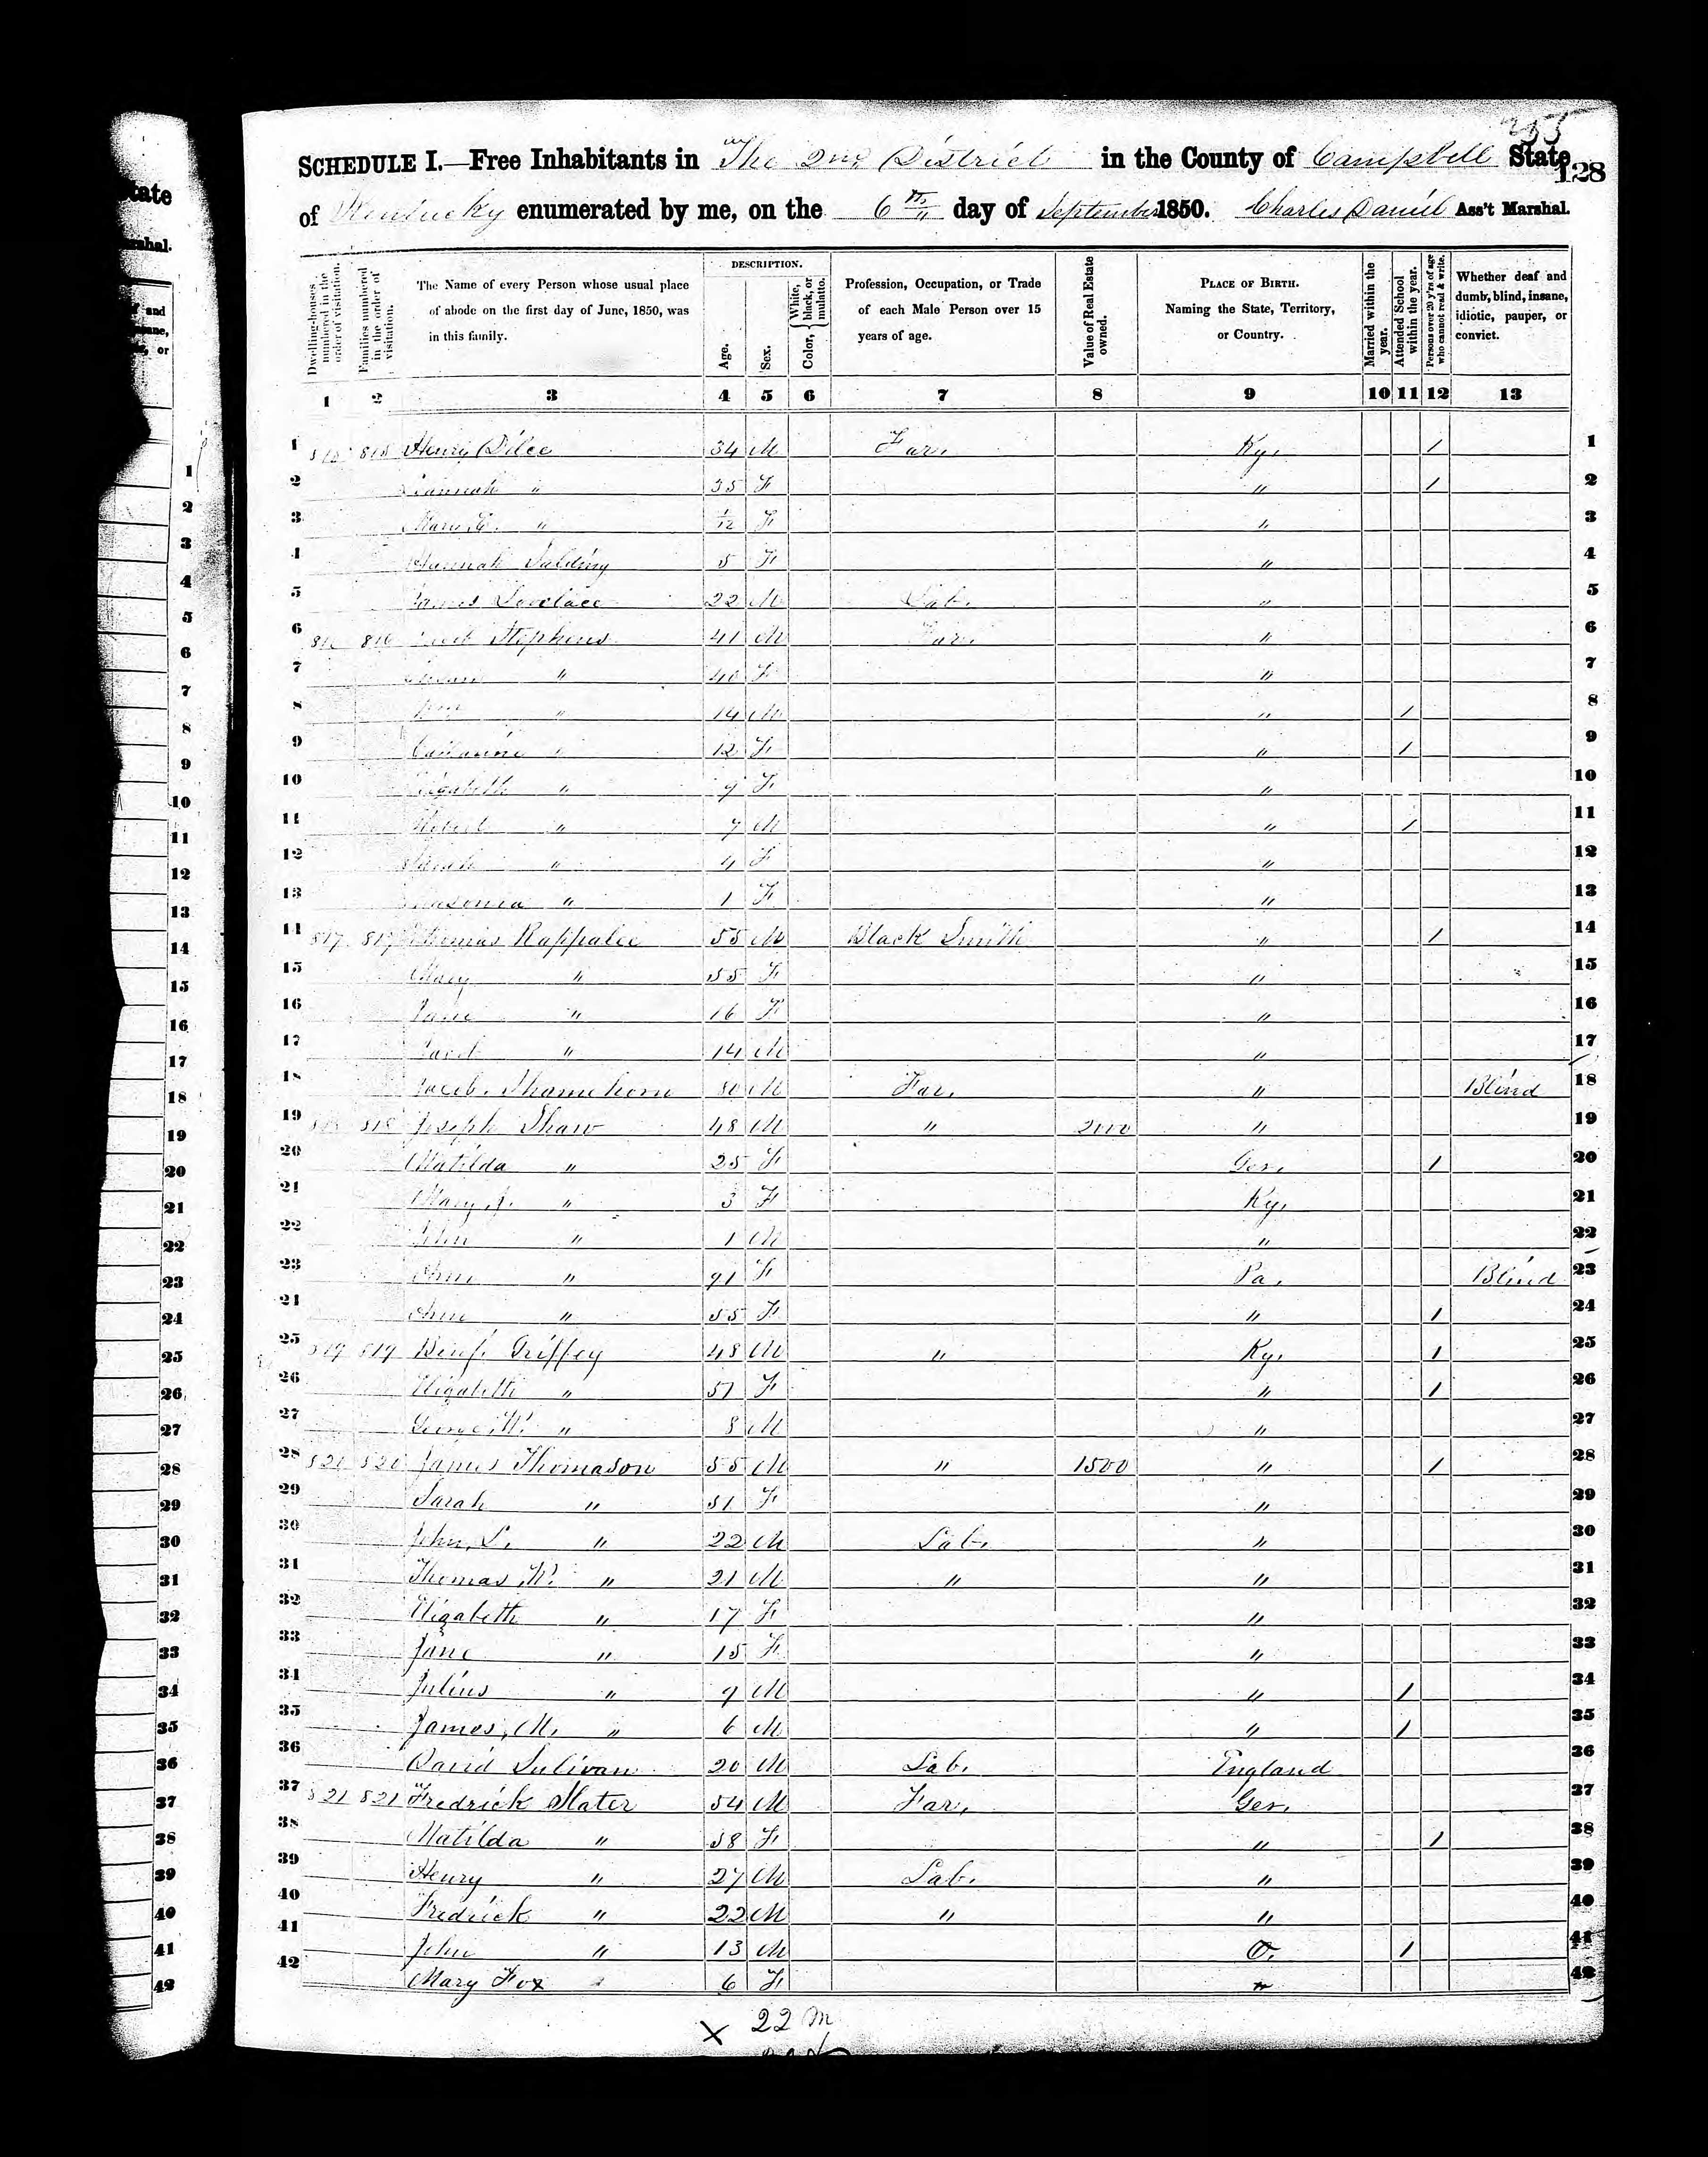 355
SCHEDULE I.—Free Inhabitants in The 2nd District in the County of Campbell State
128
of Kentucky enumerated by me, on the 6th day of September 1850. Charles Daniel Ass't Marshal.
Dwelling-houses numbered in the order of visitation.
Families numbered in the order of visitation.
The Name of every Person whose usual place of abode on the first day of June, 1850, was in this family.
DESCRIPTION.
Age.
Sex.
Color, { White, black, or mulatto.
Profession, Occupation, or Trade of each Male Person over 15 years of age.
Value of Real Estate owned.
PLACE OF BIRTH. Naming the State, Territory, or Country.
Married within the year.
Attended School within the year.
Persons over 20 y'rs of age who cannot read & write.
Whether deaf and dumb, blind, insane, idiotic, pauper, or convict.
1 2 3 4 5 6 7 8 9 10 11 12 13
1 815 815 Henry 34 M Far. Ky. / 1
2 Hannah " 35 F " / 2
3 Mary E. " 1/12 F " 3
4 Hannah 5 F " 4
5 James Lovelace 22 M Lab. " 5
6 816 816 Stephens 41 M Far. " 6
7 " 40 F " 7
8 Wm " 14 M " / 8
9 Catharine " 12 F " / 9
10 Elizabeth " 9 F " 10
11 Robert " 7 M " / 11
12 Sarah " 4 F " 12
13 " 1 F " 13
14 817 817 Thomas Rappalee 55 M Black Smith " / 14
15 Mary " 55 F " 15
16 Jane " 16 F " 16
17 Jacob " 14 M " 17
18 Jacob Shamehorn 80 M Far. " Blind 18
19 818 818 Joseph Shaw 48 M " 2000 " 19
20 Matilda " 25 F Ger. / 20
21 Mary J. " 3 F Ky. 21
22 John " 1 M " 22
23 Ann " 91 F Pa. Blind 23
24 Ann " 55 F " / 24
25 819 819 Benj. Griffey 48 M " Ky. / 25
26 Elizabeth " 51 F " / 26
27 George W. " 8 M " 27
28 820 820 James Thomason 55 M " 1500 " / 28
29 Sarah " 51 F " 29
30 John L. " 22 M Lab. " 30
31 Thomas W. " 21 M " " 31
32 Elizabeth " 17 F " 32
33 Jane " 15 F " 33
34 Julius " 9 M " / 34
35 James M. " 6 M " / 35
36 David Sulivan 20 M Lab. England 36
37 821 821 Fredrick Slater 54 M Far. Ger. 37
38 Matilda " 58 F " / 38
39 Henry " 27 M Lab. " 39
40 Fredrick " 22 M " " 40
41 John " 13 M O. / 41
42 Mary Fox 6 F " 42
x 22 M